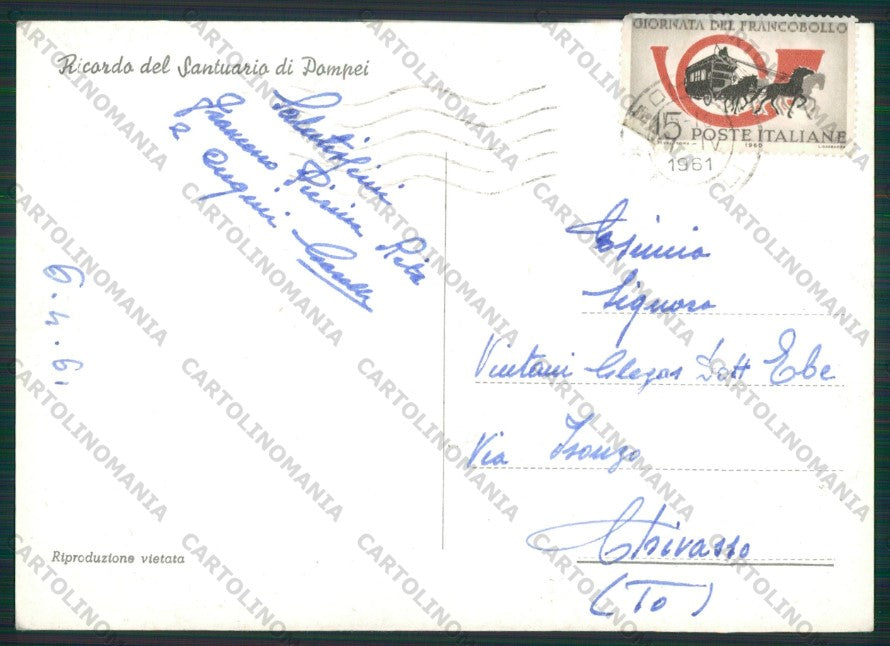 Ricordo del Santuario di Pompei
GIORNATA DEL FRANCOBOLLO
15 POSTE ITALIANE
1960
IV
1961
Salutissimi
Pierina Rita
e Auguri
6.4.61
Signora
Dott Ebe
Via Isonzo
Chivasso
(To)
Riproduzione vietata
CARTOLINOMANIA